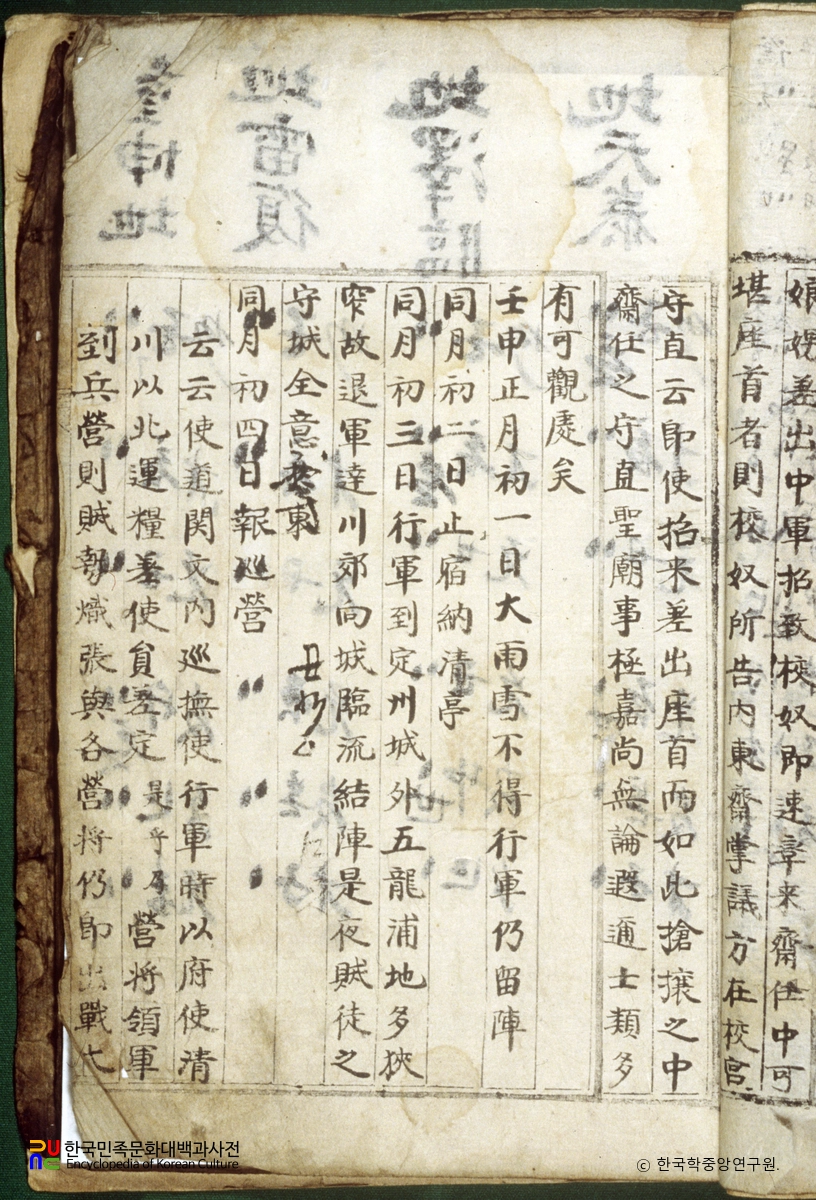 娘娚差出中軍招致校奴即速率来齋任中可
堪座首者則校奴所告内東齋掌議方在校宮
守直云即使招来差出座首而如此搶攘之中
齋任之守直聖廟事極嘉尚無論遐邇士類多
有可觀處矣
壬申正月初一日大雨雪不得行軍仍留陣
同月初二日止宿納清亭
同月初三日行軍到定州城外五龍浦地多狹
窄故退軍達川郊向城臨流結陣是夜賊徒之
守城全意
同月初四日報巡營
云云使道関文内巡撫使行軍時以府使清
川以北運糧差使負差定是乎乃營将領軍
到兵營則賊勢熾張與各營将仍即出戰
地天泰
地澤臨
地雷復
坤地
한국민족문화대백과사전
Encyclopedia of Korean Culture
© 한국학중앙연구원.